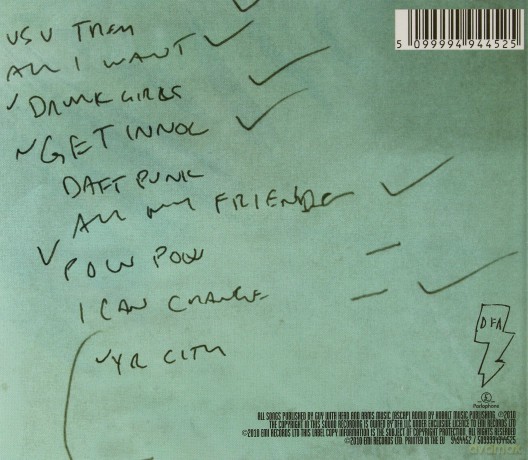 5 099994 944525
US V THEM
ALL I WANT
DRUNK GIRLS
GET INNOC
DAFT PUNK
ALL MY FRIENDS
POW POW
I CAN CHANGE
YR CITY
DFA
Parlophone
ALL SONGS PUBLISHED BY GUY WITH HEAD AND ARMS MUSIC (ASCAP) ADMIN BY KOBALT MUSIC PUBLISHING. ℗2010
THE COPYRIGHT IN THIS SOUND RECORDING IS OWNED BY DFA LLC UNDER EXCLUSIVE LICENCE TO EMI RECORDS LTD
©2010 EMI RECORDS LTD THIS LABEL COPY INFORMATION IS THE SUBJECT OF COPYRIGHT PROTECTION. ALL RIGHTS RESERVED.
©2010 EMI RECORDS LTD. PRINTED IN THE EU
dvdmax